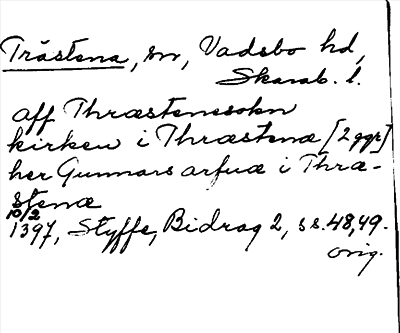 Trästena, sn, Vadsbo hd,
Skarab. l.
aff Thræstenesokn
kirken i Thræstenæ [2 ggr]
her Gunnars arfuæ i Thræ-
stenæ
10/2
1397, Styffe, Bidrag 2, ss. 48, 49.
orig.